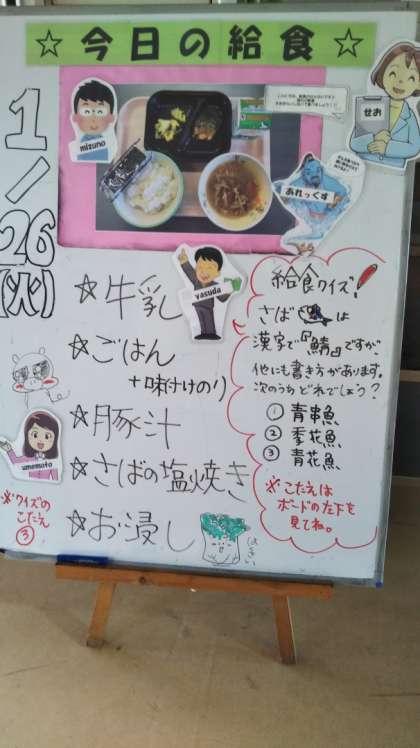 ☆今日の給食☆
1/26(火)
mizuno
せお
あれっくす
yasuda
umemoto
☆牛乳
☆ごはん
+味付けのり
☆豚汁
☆さばの塩焼き
☆お浸し
給食クイズ!
さばは
漢字で『鯖』ですが、
他にも書き方があります。
次のうちどれでしょう?
① 青串魚
② 季花魚
③ 青花魚
※こたえは
ボードの左下を
見てね。
※クイズの
こたえ
③